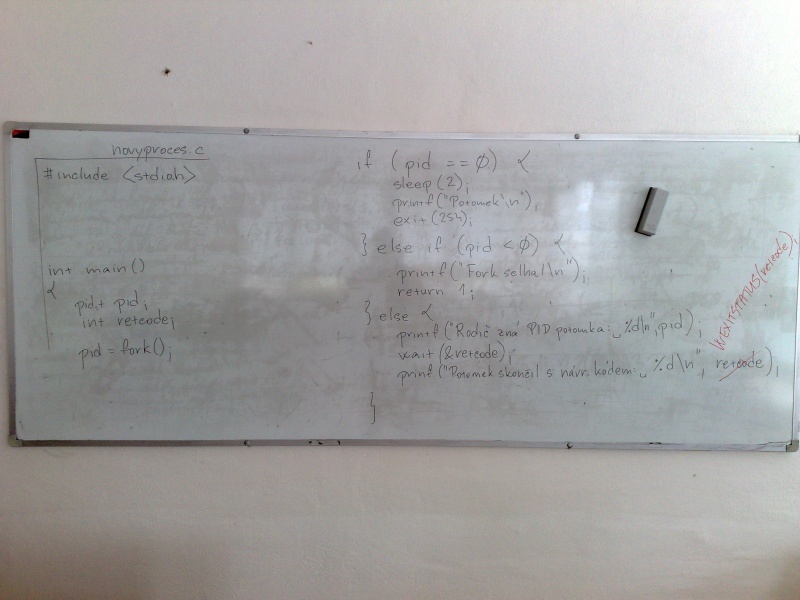 novyproces.c
#include <stdio.h>
int main()
{
pid_t pid;
int retcode;
pid = fork();
if (pid == 0) {
sleep(2);
printf("Potomek\n");
exit(254);
} else if (pid < 0) {
printf("Fork selhal\n");
return 1;
} else {
printf("Rodič zná PID potomka:␣%d\n",pid);
wait(&retcode);
printf("Potomek skončil s návr. kódem:␣%d\n", retcode);
WEXITSTATUS(retcode);
}